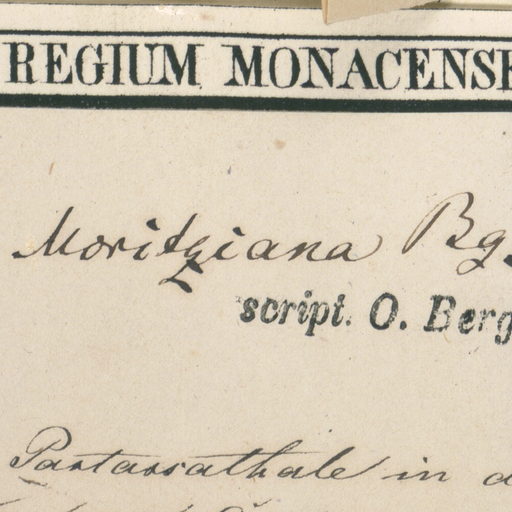 REGIUM MONACENSE
Moritziana Bg.
script. O. Berg
Pantarsathale in d